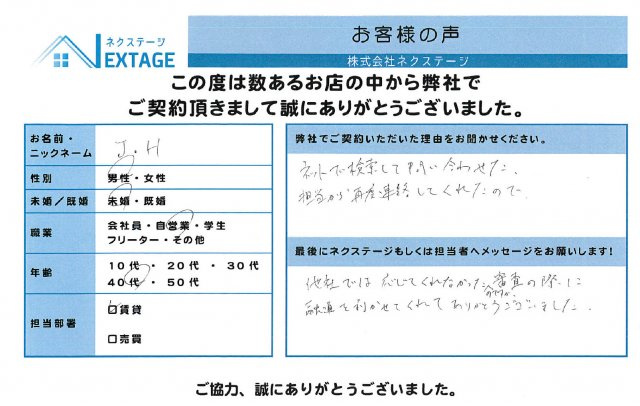 ネクステージ
NEXTAGE
お客様の声
株式会社ネクステージ
この度は数あるお店の中から弊社で
ご契約頂きまして誠にありがとうございました。
お名前・
ニックネーム
J.H
性別
男性・女性
未婚/既婚
未婚・既婚
職業
会社員・自営業・学生
フリーター・その他
年齢
10代・20代・30代
40代・50代
担当部署
□賃貸
□売買
弊社でご契約いただいた理由をお聞かせください。
ネットで検索して問い合わせた、
担当から再度連絡してくれたので
最後にネクステージもしくは担当者へメッセージをお願いします!
他社では応じてくれなかった審査の際に
融通を利かせてくれてありがとうございました。
ご協力、誠にありがとうございました。